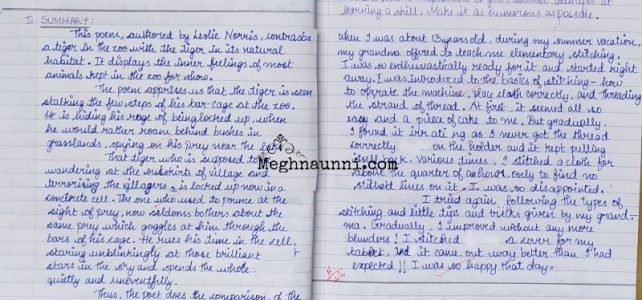 I SUMMARY:
This poem, authored by Leslie Norris, contrasts
a tiger in the zoo with the tiger in its natural
habitat. It displays the inner feelings of most
animals kept in the zoo for show.
The poem apprises us that the tiger is seen
stalking the few steps of his bar cage at the zoo.
He is hiding his rage of being locked up, when
he would rather roam behind bushes in
grasslands, spying on his prey near the lake.
That tiger who is supposed to be
wandering at the outskirts of village and
terrorising the villagers, is locked up now in a
concrete cell. The one who used to pounce at the
sight of prey, now seldom bothers about the
same prey which goggles at him through the
bars of his cage. He rues his time in the cell,
staring unblinkingly at those brilliant
stars in the sky and spends the whole
quietly and uneventfully.
Thus, the poet does the comparison of the
learning a skill. Make it as humorous as possible.
When I was about 13 years old, during my summer vacation,
my grandma offered to teach me elementary stitching.
I was so enthusiastically ready for it and started right
away. I was introduced to the basics of stitching - how
to operate the machine, place cloth correctly, and threading
the strand of thread. At first, it seemed all so
easy and a piece of cake to me. But gradually,
I found it irritating as I never got the thread
correctly on the holder and it kept pulling
itself back. Various times, I stitched a cloth for
about the quarter of an hour, only to find no
stitched lines on it. I was so disappointed.
I tried again, following the types of
stitching and little tips and tricks given by my grand-
ma. Gradually, I improved without any more
blunders! I stitched a cover for my
tablet, and it came out way better than I had
expected!! I was so happy that day.
Meghnaunni.com